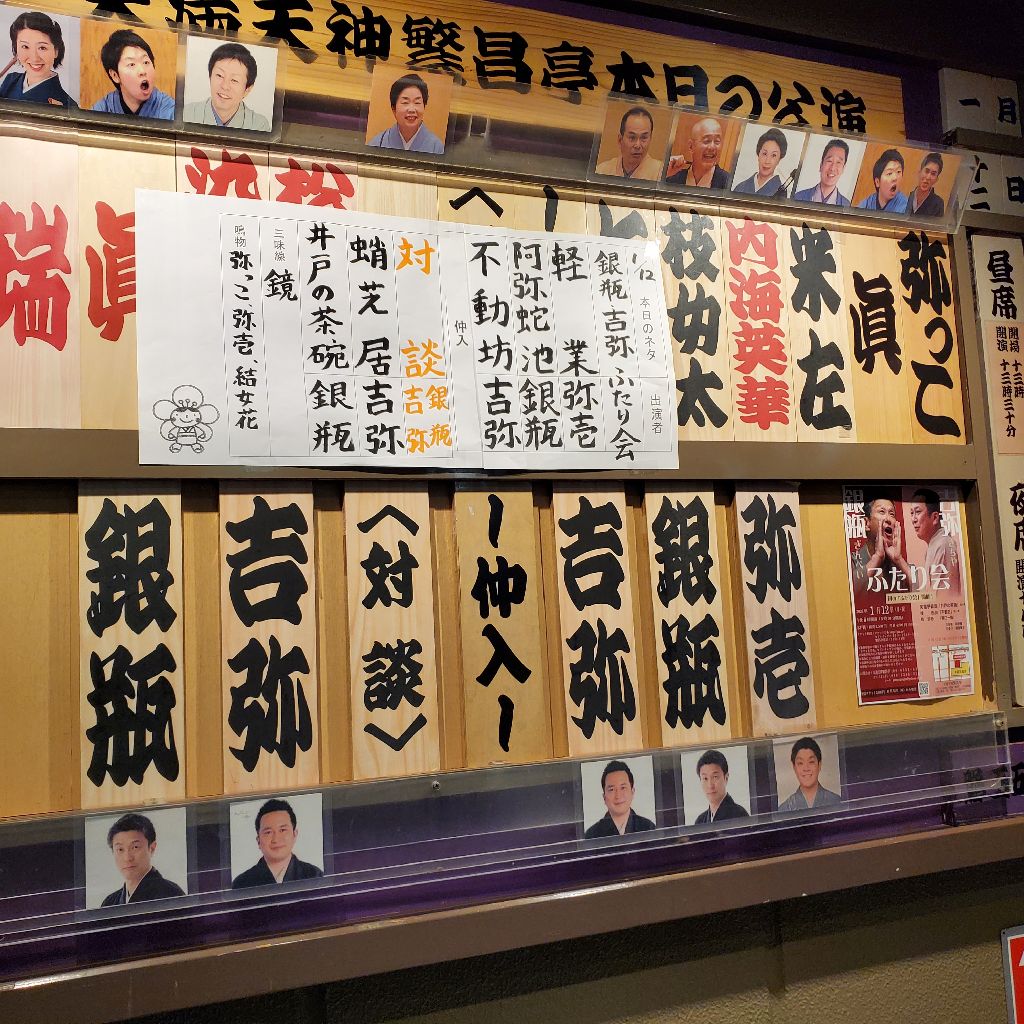 満天神繁昌亭本日の公演
一月
十二日
昼席
開場 十三時
開演 十三時三十分
夜席
弥っこ
眞
米左
内海英華
枝女太
眞
瑞
本日のネタ 出演者
銀瓶吉弥ふたり会
軽業 弥壱
阿弥陀池 銀瓶
不動坊 吉弥
仲入
対談 銀瓶 吉弥
蛸芝居 吉弥
井戸の茶碗 銀瓶
三味線 鏡
鳴物 弥っこ 弥壱、結女花
弥壱
銀瓶
吉弥
ー仲入ー
〈対談〉
吉弥
銀瓶
銀瓶
吉弥
ふたり会
1月12日